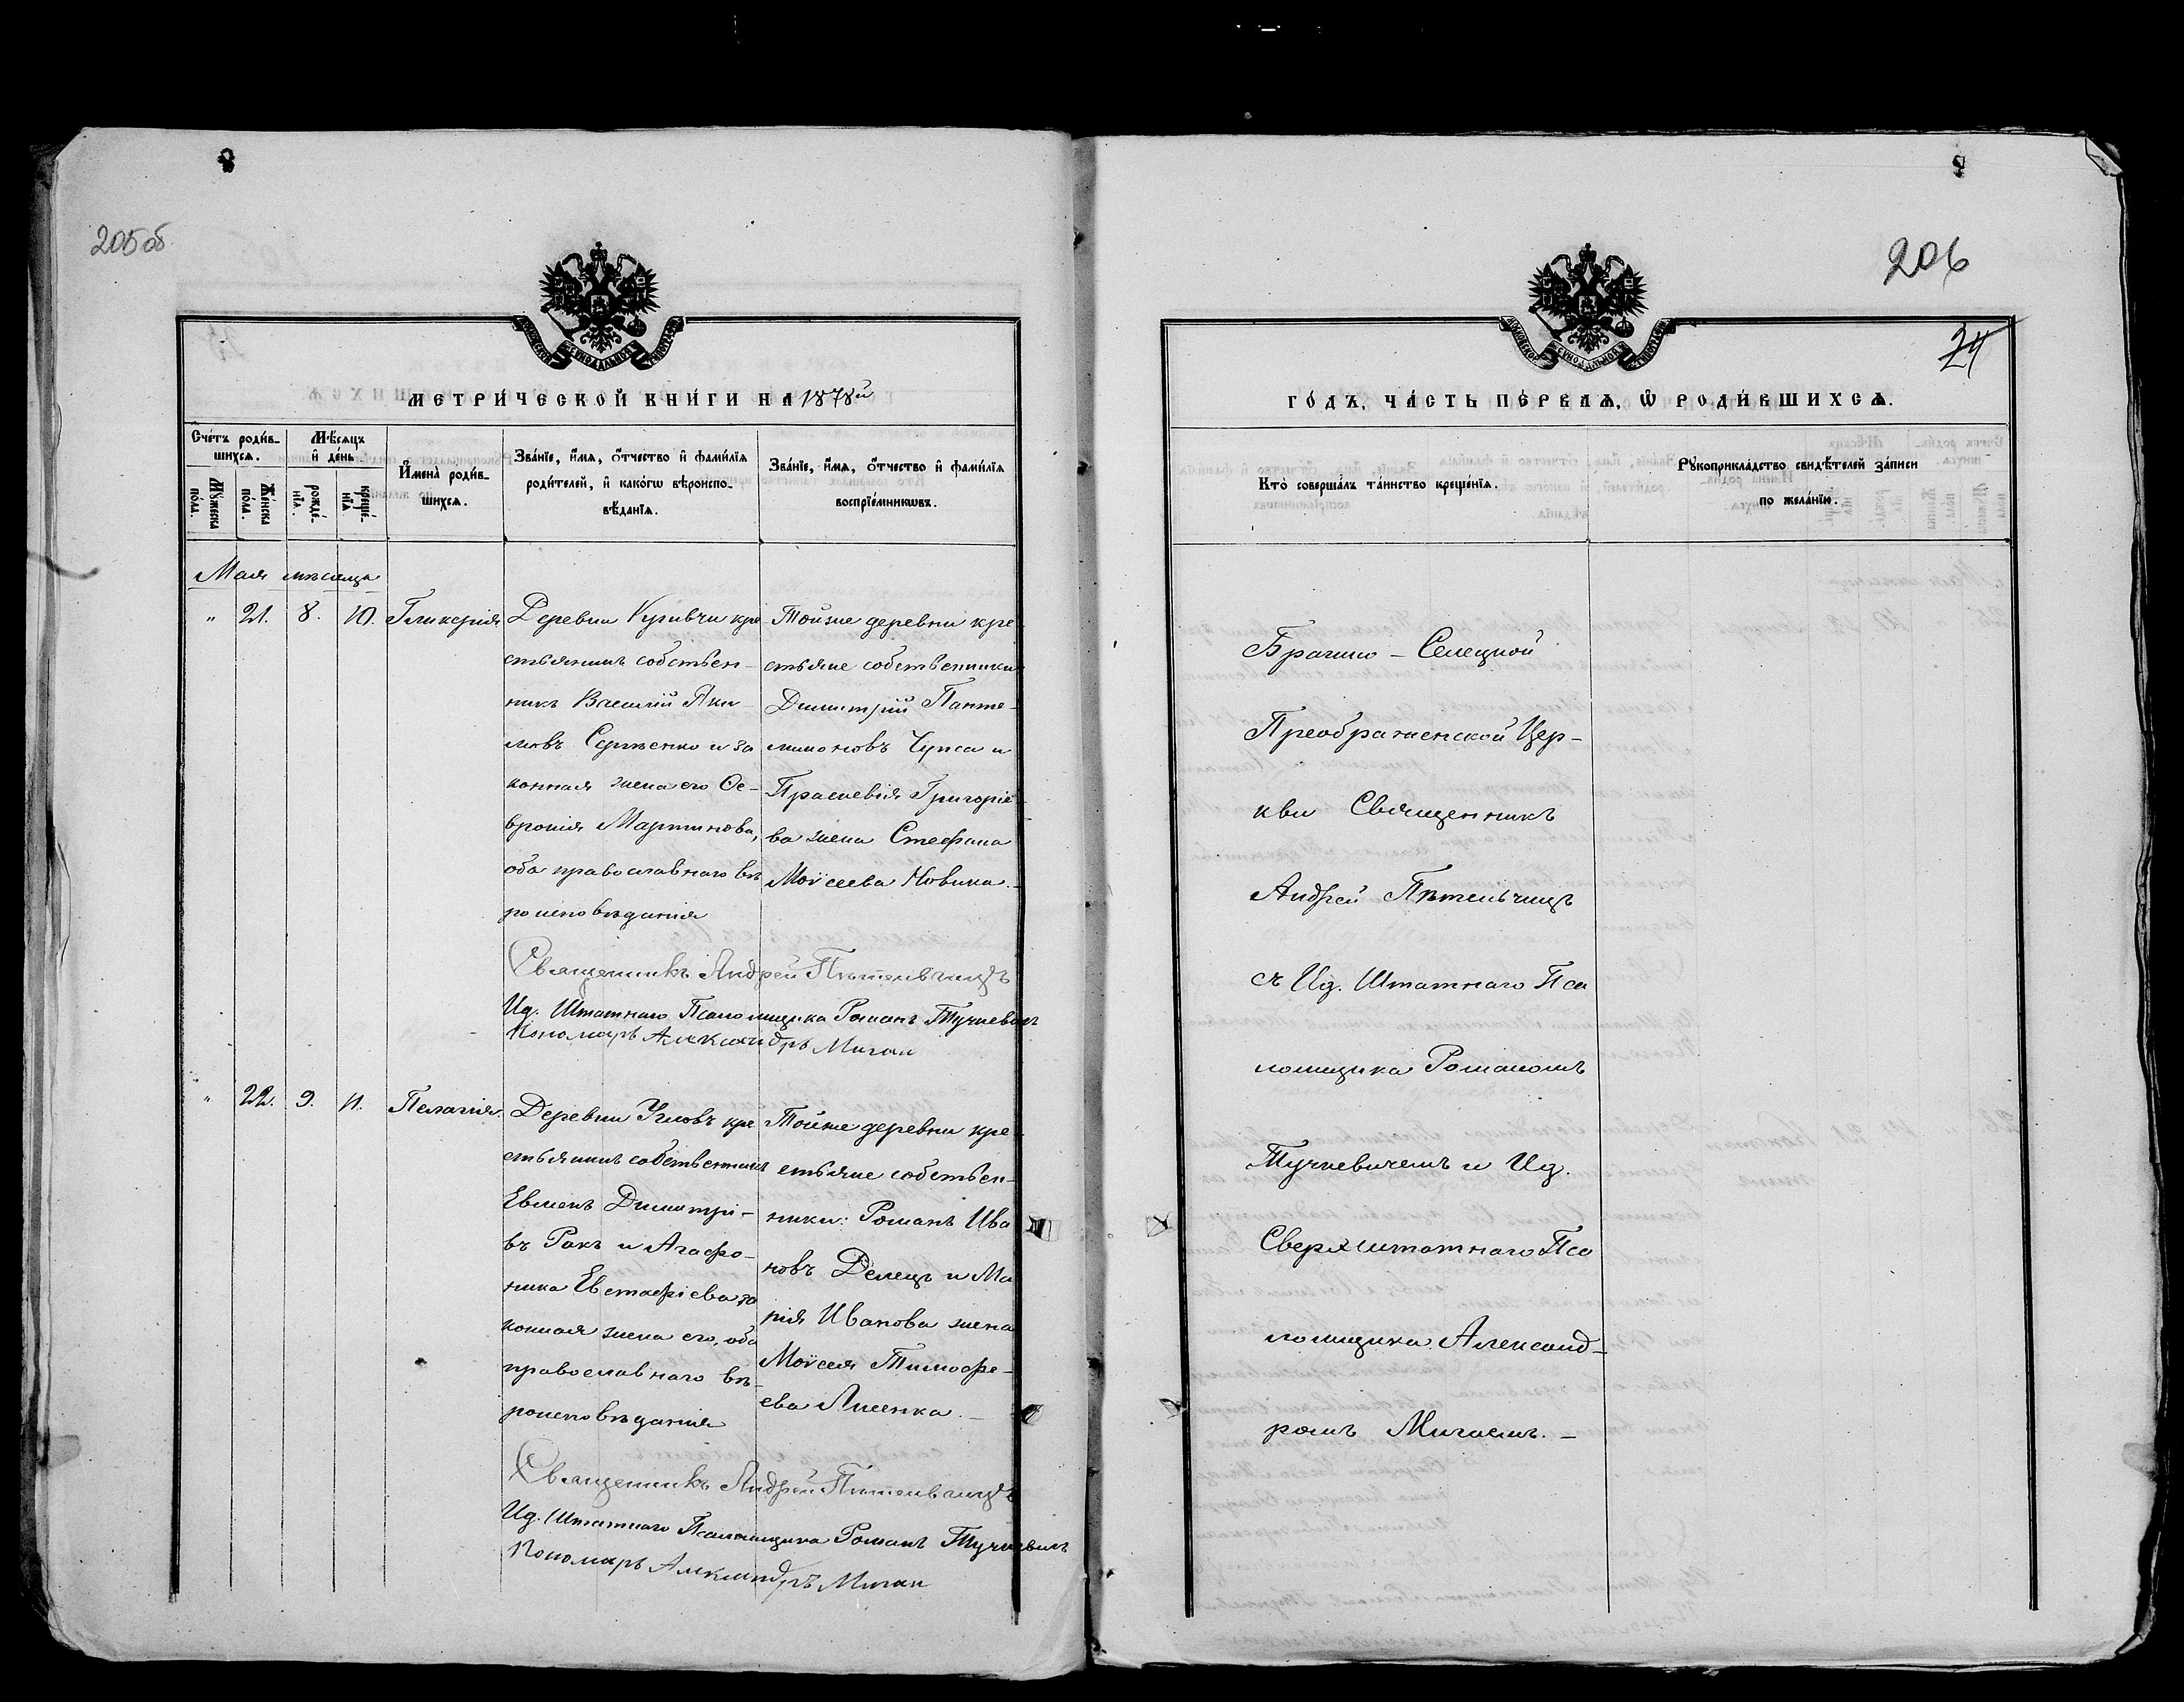 205 об
206
24
МОСКОВСКОЙ СѴНОДАЛЬНОЙ ТИПОГРАФІИ
МОСКОВСКОЙ СѴНОДАЛЬНОЙ ТИПОГРАФІИ
МЕТРИ́ЧЕСКОЙ КНИ́ГИ НА 1878й
Сче́тъ роди́в-
шихсѧ.
Мꙋ́жеска
по́ла.
Же́нска
по́ла.
Мѣ́сѧцъ
и҆ де́нь.
рожде́-
нїѧ.
креще́-
нїѧ
И҆мена̀ роди́в-
шихсѧ.
Зва́нїе, и҆́мѧ, ѻ҆́тчество и҆ фами́лїѧ
роди́телей, и҆ како́гѡ вѣроиспо-
вѣ́данїѧ.
Зва́нїе, и҆́мѧ, ѻ҆́тчество и҆ фами́лїѧ
воспрїе́мникѡвъ.
Мая мѣсяца
" 21. 8. 10. Гликерія
Деревни Куривчи кре
стьянинъ собствен-
никъ Василій Яки-
мовъ Сергиенко и за
конная жена его Фе-
вронія Мартинова,
оба православнаго вѣ
роисповѣданія
Тойже деревни кре-
стьяне собственники
Димитрій Панте-
лимоновъ Чупса и
Праскевія Григоріе-
ва жена Стефана
Моѵсеева Новика.-
Священникъ Андрей Пѣтельчицъ
Ид. Штатнаго Псаломщика Романъ Тучкевичъ
Пономарь Александръ Мигай
" 22. 9. 11. Пелагія.
Деревни Угловъ кре
стьянинъ собственникъ
Евменъ Димитрі-
въ Ракъ и Агафо-
ника Евстафіева за
конная жена его, оба
православнаго вѣ-
роисповѣданія
Тойже деревни кре-
стьяне собствен-
ники: Романъ Ива
новъ Делецъ и Ма
рія Иванова жена
Моѵсея Тимофе-
ева Лисенка. -
Священникъ Андрей Пѣтельчицъ
Ид. Штатнаго Псаломщика Романъ Тучкевичъ
Пономарь Александръ Мигай
ГО́ДЪ, ЧА́СТЬ ПЕ́РВАѦ, Ѽ РОДИ́ВШИХСѦ.
Кто̀ соверша́лъ та́инство креще́нїѧ.
Рꙋкоприкла́дство свидѣ́телей за́писи
по жела́нїю.
Брагино - Селецкой
Преображенской Цер-
кви Священникъ
Андрей Пѣтельчицъ
съ Ид. Штатнаго Пса
ломщика Романомъ
Тучкевичемъ и Ид.
Сверхштатнаго Пса
ломщика Александ-
ромъ Мигаемъ. -